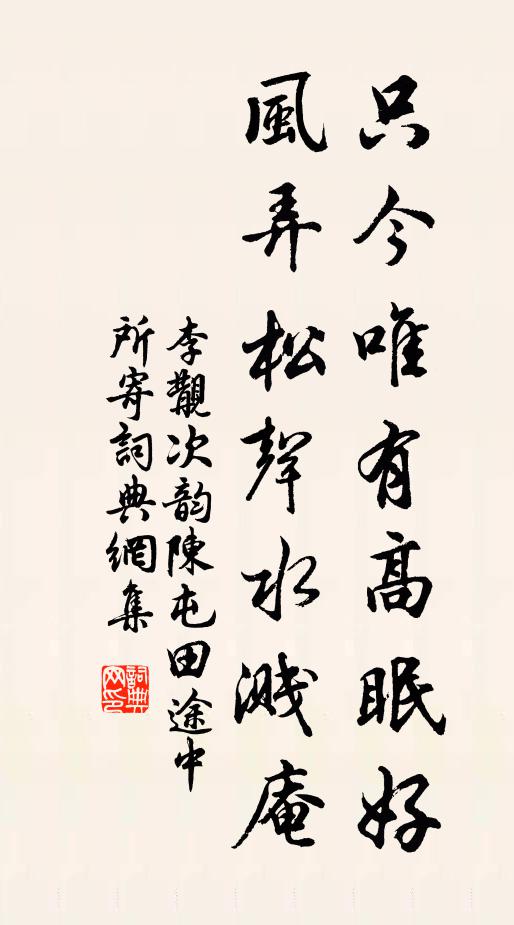 只今唯有高眠好
風弄松聲水濺庵
李覯次韵陳屯田途中
所寄詞典網集
詞典網印